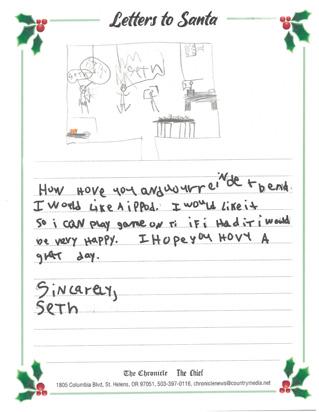 Letters to Santa
SeTh
How Hove you and yourreindet bend.
I would Like A ippod. I would Like it
so i can play game on ti if i Had it i would
be very Happy. I Hope you Hovy A
grat day.
Sincarely,
SeTh
The Chronicle The Chief
1805 Columbia Blvd, St. Helens, OR 97051, 503-397-0116, chroniclenews@countrymedia.net